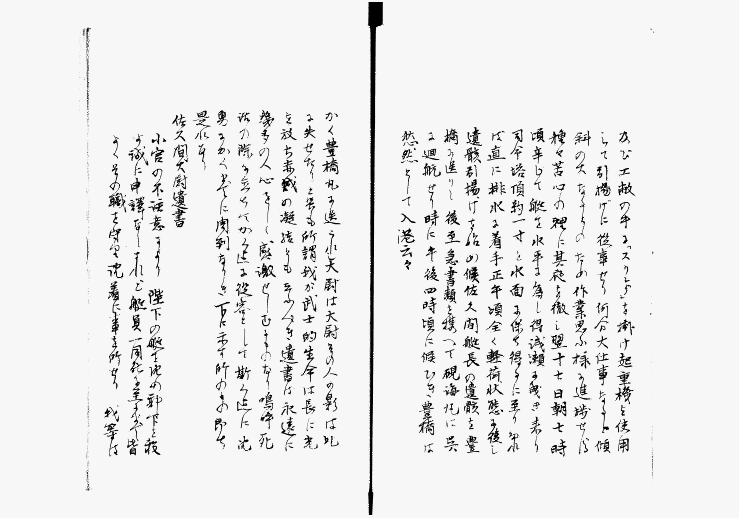 及び工廠の「スリング」を掛け起重機を使用
して引揚げに従事せり何分大仕事なると傾
斜の大なるとのため作業思ふ様に進捗せず
種々苦心の裡に其夜を徹し翌十七日朝七時
頃辛じて艇を水平に為し得浅瀬に曳き来り
司令塔頂約一寸を水面に保ち得るに至り
ば直に排水に着手正午頃全く軽荷状態に復し
遺骸引揚げを始め候佐久間艇長の遺骸を豊
橋に送りし後至急書類を携へて砚海丸に
て廻航せり時に午後四時頃に候ひき豊橋は
愁然として入港云々
かく豊橋丸に送られ大尉は大尉その人の
に失せたりと雖も所謂我が武士的生命は長に光
を放ち赤誠の凝結とも云ふべき遺書は永遠に
幾多の人心をして感激せしむるものなり嗚呼死
の際に立ちてかく迄に従容として斯く迄に沈
勇にかく迄に周到なりき
是れなり
佐久間大尉遺書
小官の不注意により 陛下の艇を沈め部下を殺
す誠に申訳なしされど艇員一同死に至るまで皆
よくその職を守り沈着に事を所せり 我等は